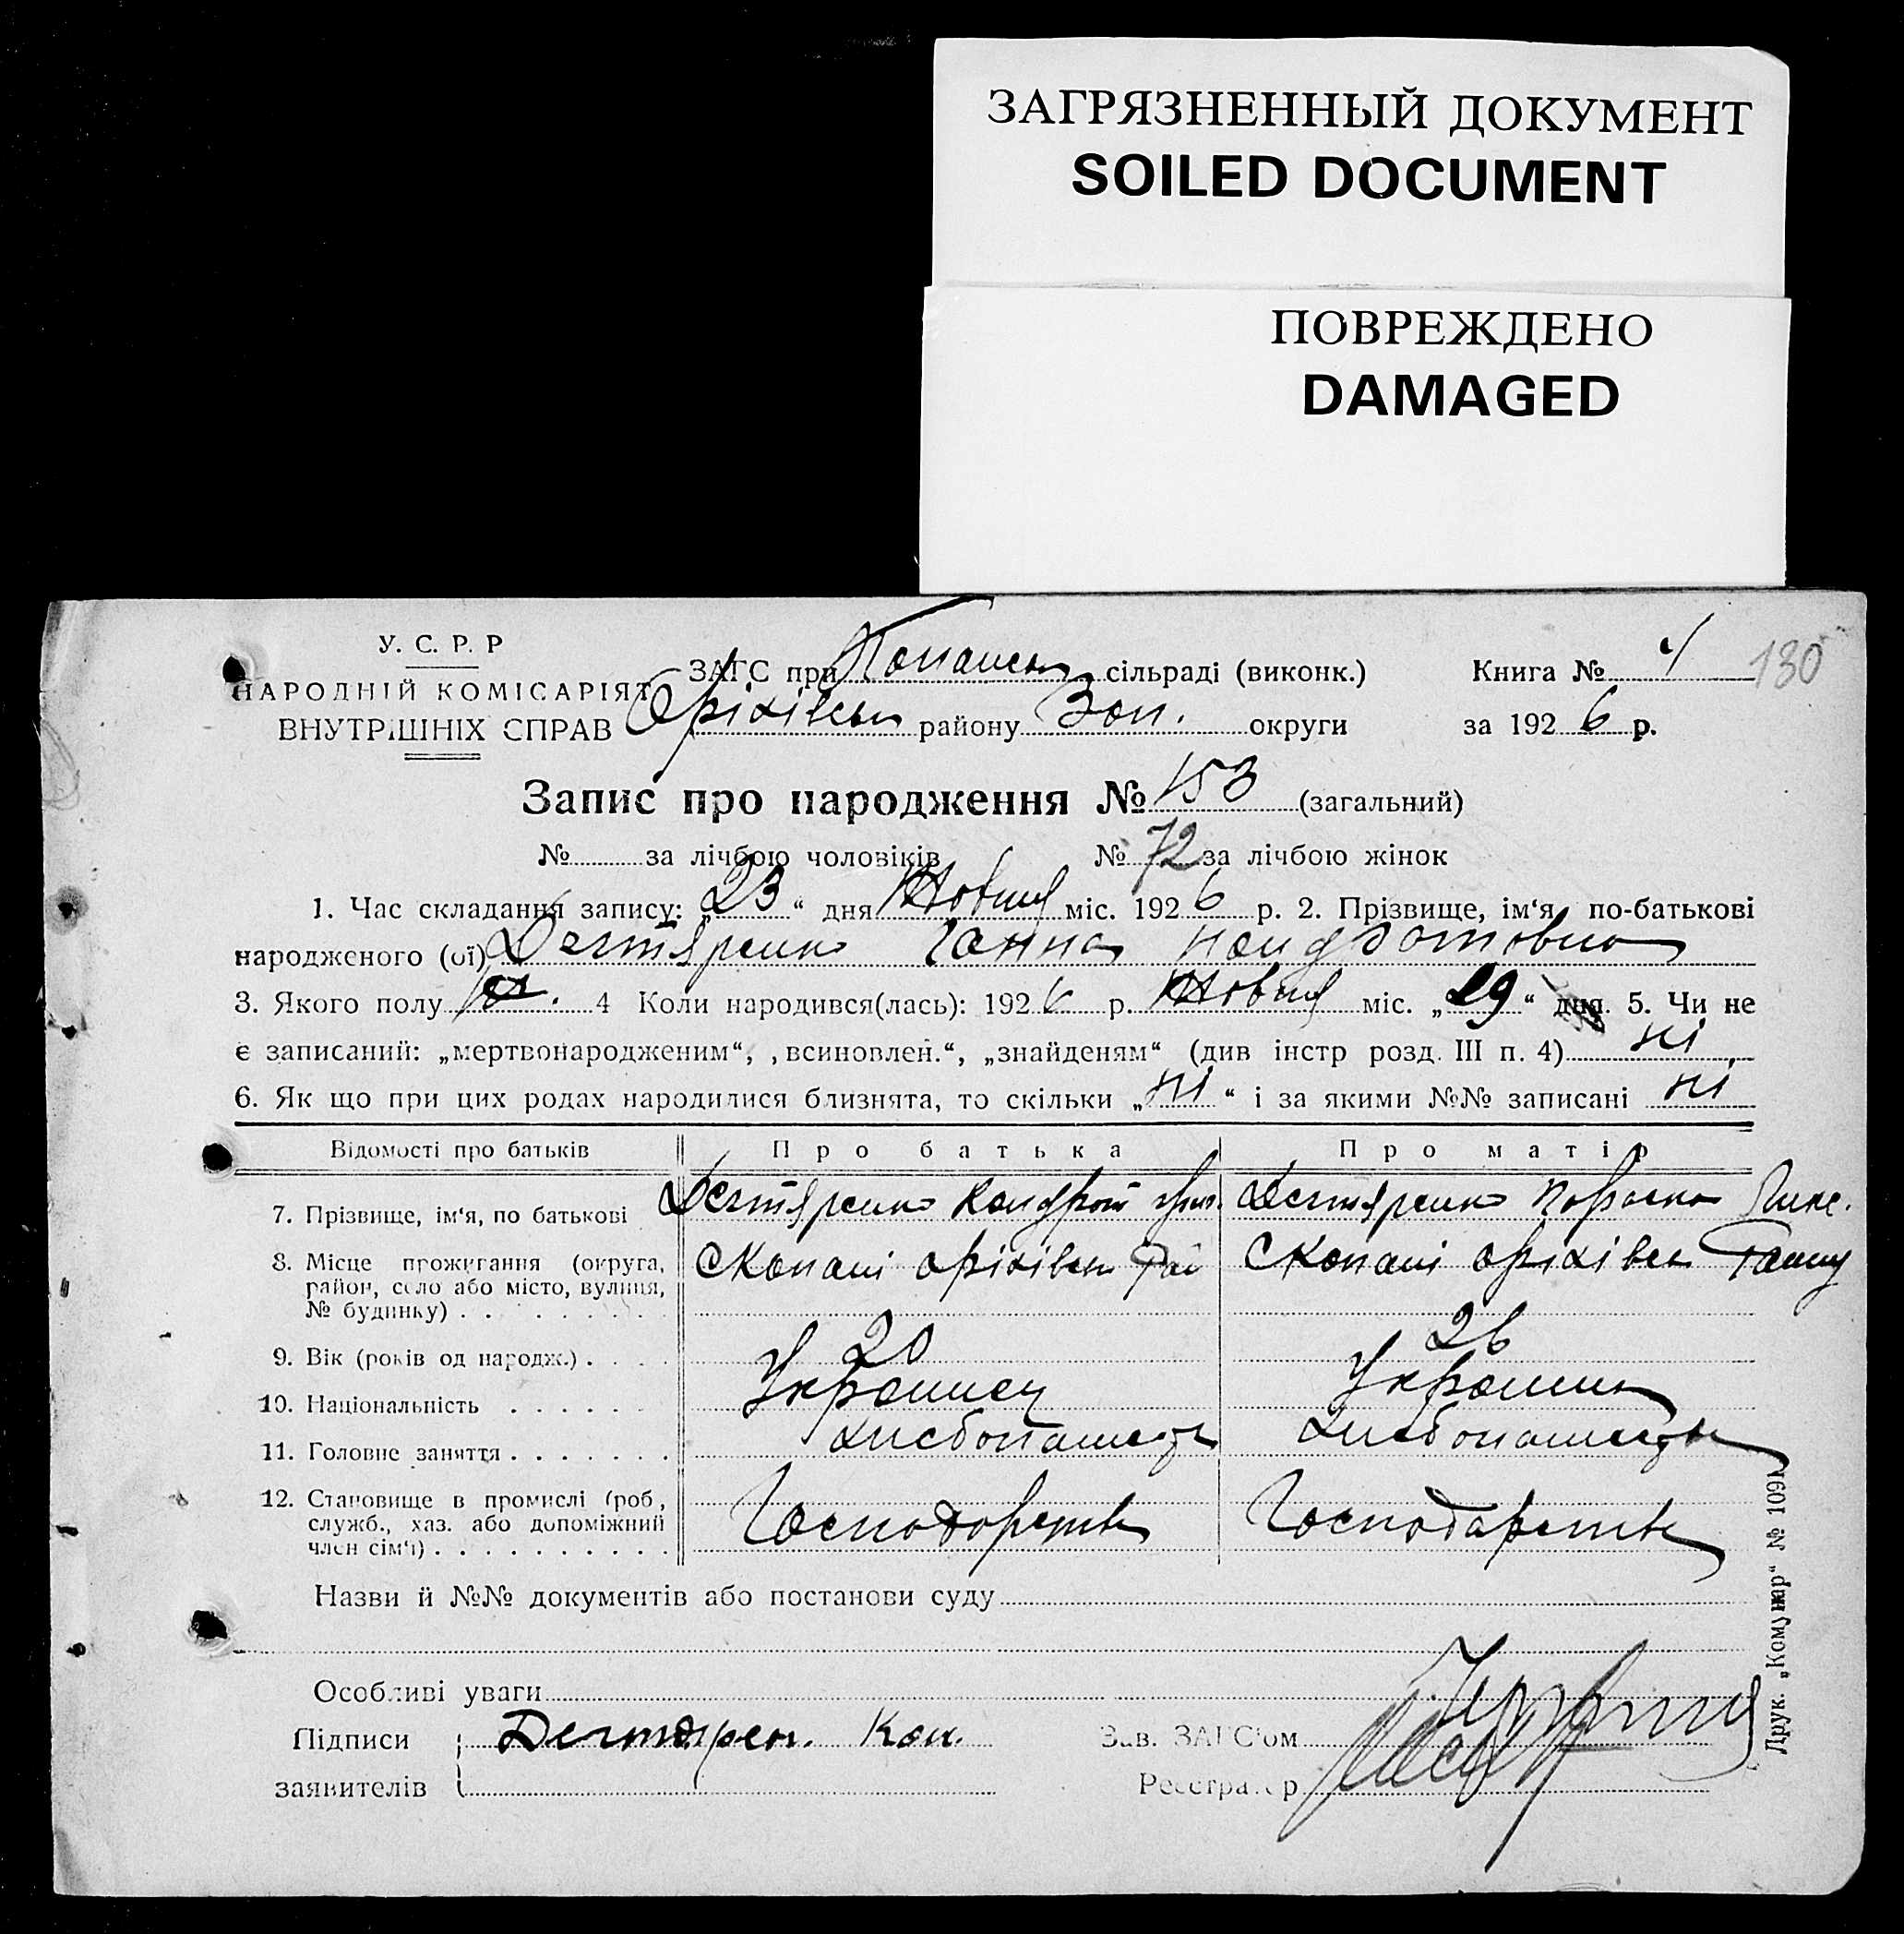 ЗАГРЯЗНЕННЫЙ ДОКУМЕНТ
SOILED DOCUMENT
ПОВРЕЖДЕНО
DAMAGED
У. С. Р. Р
НАРОДНІЙ КОМІСАРІЯТ
ВНУТРІШНІХ СПРАВ
ЗАГС при Копансь сільраді (виконк.) Книга № 130
Оріхівськ району Зап. округи за 1926 р.
Запис про народження № 153 (загальний)
№ за лічбою чоловіків № 72 за лічбою жінок
1. Час складання запису: „23“ дня Жовтня міс. 1926 р. 2. Прізвище, ім‘я, по-батькові
народженого (ої) Дегтяренко Ганна Кондратовна
3. Якого полу 4 Коли народився(лась): 1926 р. Жовтня міс. „19“ дня. 5. Чи не
є записаний: „мертвонародженим“, „всиновлен.“, „знайденям“ (див інстр розд. III п. 4) ні
6. Як що при цих родах народилися близнята, то скільки „ні“ і за якими №№ записані ні
Відомості про батьків Про батька Про матір
7. Прізвище, ім‘я, по батькові Дегтяренко Кондрат Дегтяренко Параска
8. Місце проживання (округа, район, село або місто, вулиця, № будинку) С Копані Оріхівськ С Копані Оріхівськ
9. Вік (років од народж.) 20 26
10. Національність Украинец Украинка
11. Головне заняття Хлебопашець Хлебопашець
12. Становище в промислі (роб., служб., хаз. або допоміжний член сім‘ї) Господарств Господарств
Назви й №№ документів або постанови суду
Особливі уваги
Підписи Дегтярен. Кон. Зав. ЗАГС‘ом
заявителів Реєстратор
Друк. „Комунар“ № 1091